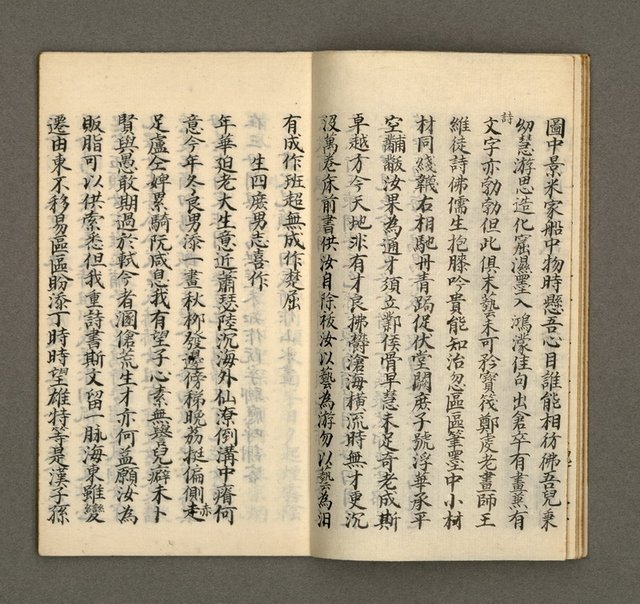 圖中景米家船中物時懸吾心目誰能相彷彿吾兒秉
幼慧游思造化窟濕墨入鴻濛佳句出倉卒有畫兼有
詩
文字亦勃勃但此俱末藝未可矜寶筏鄭虔老畫師王
維徒詩佛儒生抱膝吟貴能知治忽區區筆墨中小材
材同綫韈右相馳丹青跼促伏堂闕庶子號浮華承平
空黼黻汝果為通才須立鄴侯骨早慧未足奇老成斯
卓越方今天地非有才良拂鬱滄海橫流時無才更沉
沒萬卷床前書供汝自除祓汝以藝為游勿以藝為汩
有成作班超無成作楚屈
生四庶男志喜作
年華迫老大生意近蕭瑟陸沉海外仙潦倒溝中瘠何
意今年冬良男添一畫秋柳發邊傍稊晚荔挺偏側走
赤
足盧仝婢累騎阮咸息我有望子心素無譽兒癖未卜
賢與愚敢期過於軾今者溷傖荒生才亦何益願汝為
販脂可以供索悉但我重詩書斯文留一脉海東雖變
遷由東不移易區區盼添丁時時望雄特等是漢子孫